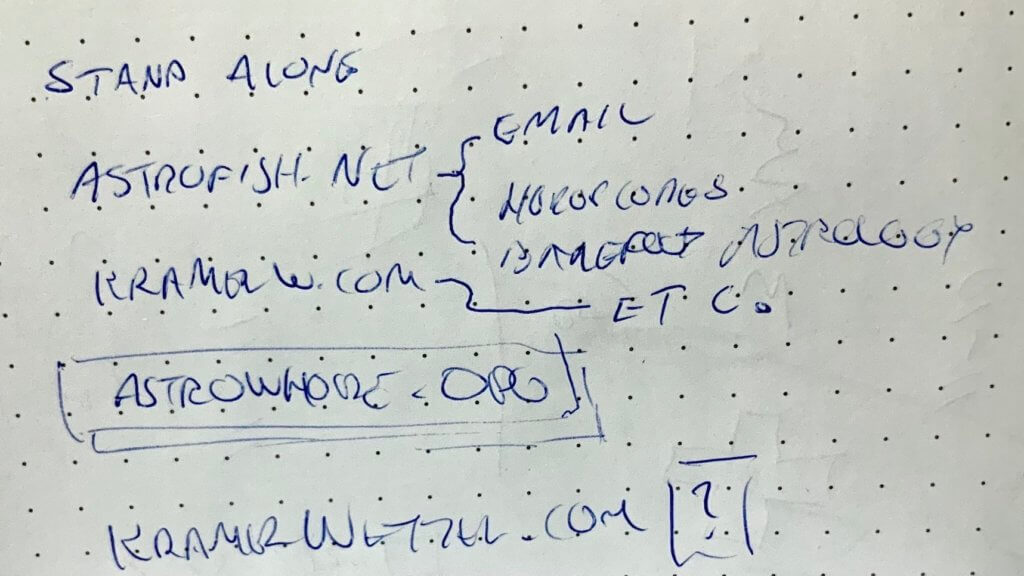 STAND ALONG
ASTROFISH.NET
EMAIL
HOROSCOPES
BAREFOOT ASTROLOGY
KRAMERW.COM
ETC.
ASTROWHORE.ORG
KRAMERWETZEL.COM ?